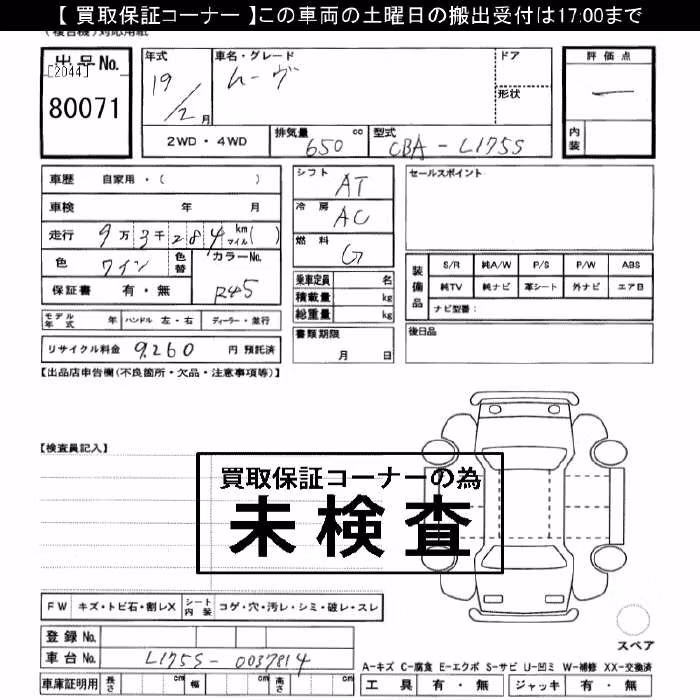 【 買取保証コーナー 】この車両の土曜日の搬出受付は17:00まで
出品No.
[2044]
80071
年式
19/2月
車名・グレード
ムーヴ
ドア
形状
評価点
—
内装
2WD・4WD
排気量 650 cc
型式 CBA-L175S
車歴 自家用・( )
車検 年 月
走行 9万3千284 km マイル( )
色 ワイン
色替
カラーNo. R45
保証書 有・無
シフト AT
冷房 AC
燃料 G
乗車定員 名
積載量 kg
総重量 kg
書類期限
月 日
セールスポイント
装備品
S/R 純A/W P/S P/W ABS
純TV 純ナビ 革シート 外ナビ エアB
ナビ型番:
後日品
モデル年式 年 ハンドル 左・右 ディーラー・並行
リサイクル料金 9,260 円 預託済
【出品店申告欄(不良箇所・欠品・注意事項等)】
【検査員記入】
買取保証コーナーの為
未検査
FW キズ・トビ石・割レX シート内装 コゲ・穴・汚レ・シミ・破レ・スレ
登録No.
車台No. L175S-0037814
車庫証明用 長さ cm 幅 cm 高さ cm
スペア
A-キズ C-腐食 E-エクボ S-サビ U-凹ミ W-補修 XX-交換済
工具 有・無 ジャッキ 有・無